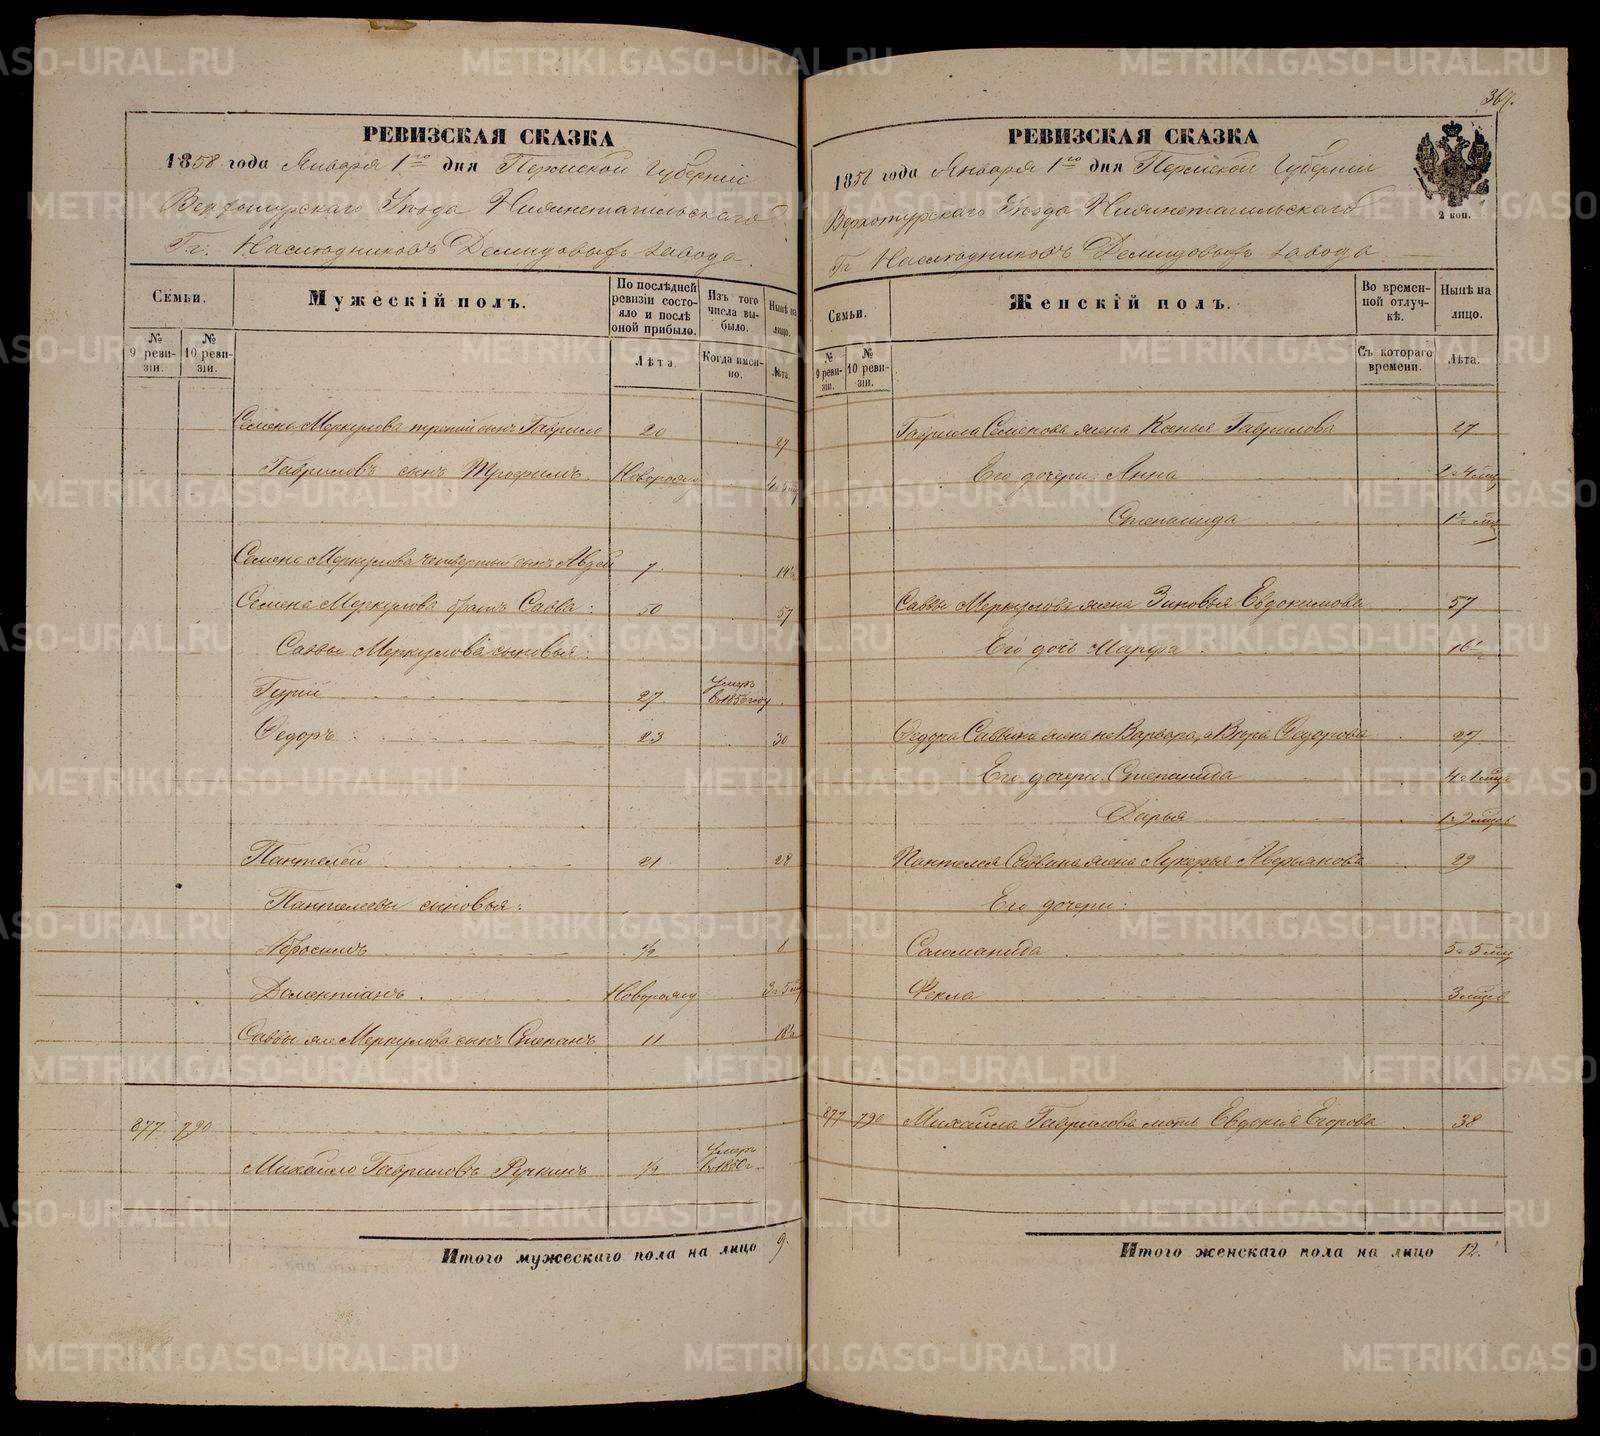 367.
РЕВИЗСКАЯ СКАЗКА
1858 года Января 1го дня Пермской Губерніи
Верхотурскаго Уѣзда Нижнетагильскаго
Гг. Наслѣдниковъ Демидовыхъ завода.
Семьи.
№ 9 ревизіи.
№ 10 ревизіи.
Мужескій полъ.
По послѣдней ревизіи состояло и послѣ оной прибыло.
Лѣта
Изъ того числа выбыло.
Когда именно.
Нынѣ на лицо.
Лѣта.
Семена Меркулова третій сынъ Гаврило 20 27
Гавриловъ сынъ Трофимъ. Новорожд
Семена Меркулова четвертый сынъ 7 14½
Семена Меркулова братъ Савва: 50 57
Саввы Меркулова сыновья:
Гурій 27 умеръ в 1856 году
Ѳедоръ 23 30
Пантелей 21 28
Пантелеевы сыновья:
Абросимъ ½ 8
Доментіанъ. Новорожд 3 г 5 мц
Саввы же Меркулова сынъ Степанъ 11 18½
877 790
Михайло Гавриловъ Ручкинъ ½ умеръ в 1850 г.
Итого мужескаго пола на лицо 9.
РЕВИЗСКАЯ СКАЗКА
1858 года Января 1го дня Пермской Губерніи
Верхотурскаго Уѣзда Нижнетагильскаго
Гг Наслѣдниковъ Демидовыхъ завода
2 коп.
Семьи.
№ 9 ревизіи.
№ 10 ревизіи.
Женскій полъ.
Во временной отлучкѣ.
Съ котораго времени.
Нынѣ на лицо.
Лѣта.
Гаврила Семенова жена Ксенья Гаврилова 27
Его дочери Анна 2 г 4 мц
Степанида
Саввы Меркулова жена Зиновья Евдокимова 57
Его дочь Марфа 16½
Ѳедора Саввина жена не Варвара, а Вера Ѳедорова 27
Его дочери Степанида 4 г 1 мцъ
Дарья 1 г 9 мцев
Пантелея Саввина жена Лукерья Аверьянова 29
Его дочери:
Соломанида 5 г 5 мц
Ѳекла 3 мцев
877 790 Михайла Гаврилова мать Евдокія Егорова 38
Итого женскаго пола на лицо 12.
METRIKI.GASO-URAL.RU